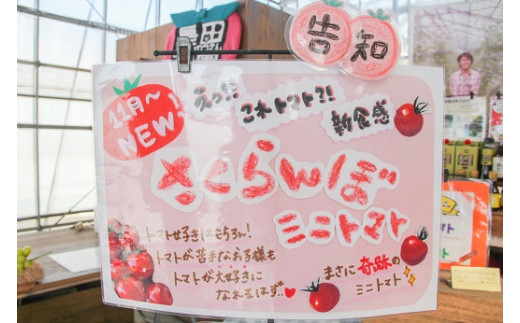 告知
11月～
NEW!
えっ!!
これトマト?!
新食感
さくらんぼ
ミニトマト
トマト好きはもちろん!
トマトが苦手なお子様も
トマトが大好きに
なれるはず‥
まさに奇跡の
ミニトマト